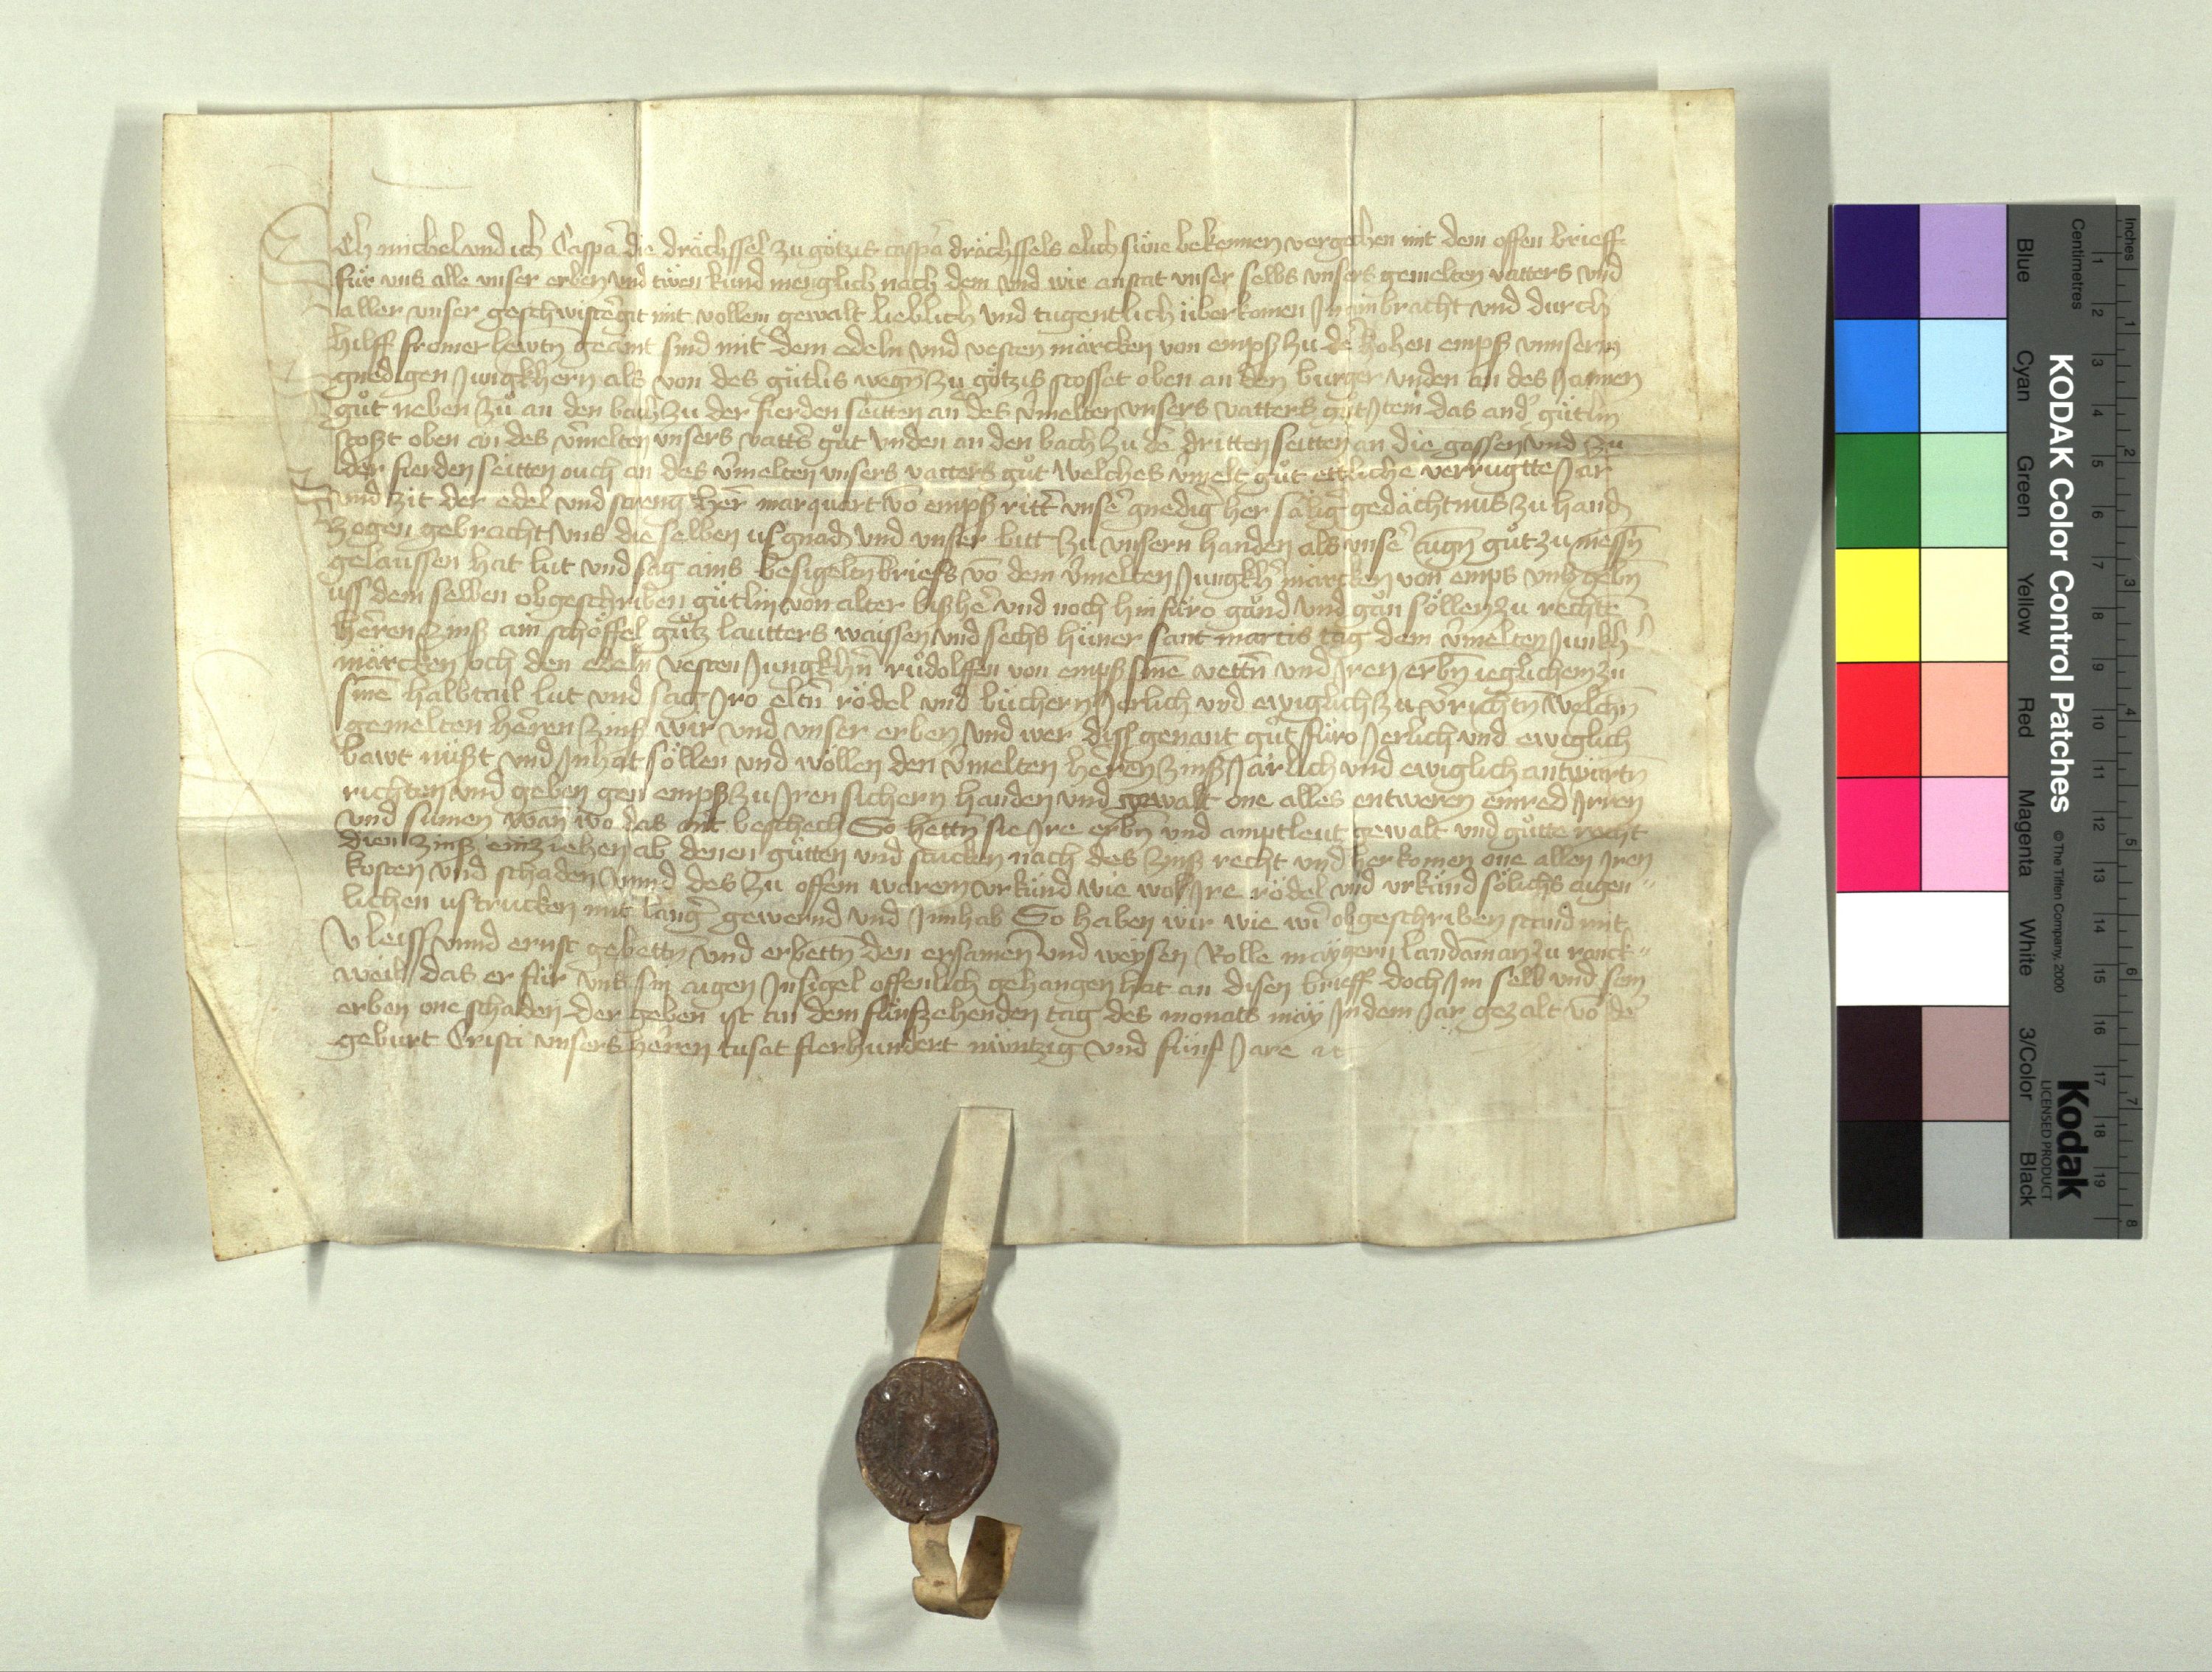 Ich michel und ich Caspar die drächssel zu götzis caspar drächssels elich süne bekennen vergechen mit dem offen brieff
für uns alle unser erben und tüen kund menglich nach dem und wir anstat unser selbs unsers gemelten vatters und
aller unser geschwistergit mit vollem gewalt lieblich und tugentlich überkomen bracht und durch
hilff fromer lewtn geaint sind mit dem edeln und vesten märcken von empß zu der hohen empß unnserm
gnedigen Jungkhern als von des gütlis wegn zu götzis stosset oben an den burger unden an des
gůt neben zů an den bach zu der fierden seitten an des vmelten unsers vatters gůt Item das and gütlin
stoßt oben an des vmelten unsers vatts gůt unden an den bach zu de dritten seitten an die gassen und zu
der fierden seitten ouch an des vmelten unsers vatters gůt welches vmelt gůt ettliche verrugtte Jar
und zit der edel und streng her marquart vo empß ritt unse gnedig her sälig gedächtnus zu hand
zogen gebracht uns die selben us gnad und unser bitt zu unsern handen als unse aign gůt zu messn
gelaussen hat lut und sag ains besigeltn briefs vo dem vmelten Jungkh märcken von emps uns gebn
uss dem selben obgeschriben gütlin von alter bishe und noch hinfüro gånd und gån söllen zu rechte
herren zinß ain schöffel gůtz lautters waissen und sechs hüner sant martis tag dem vmelten Junkh
märcken och den edeln vesten Jungkhn růdolffen von empß sine vettn und Iren erbn ieglichem zu
sine halbtail lut und sag Iro eltn rödel und büchern Jerlich und ewiglich zu vrichtn welchn
gemelten herren zinß wir und unser erben und wer diss genant gůt füro Jerlich und ewiglich
bawt nüßt und Inhat söllen und wöllen den vmelten herren zinß Järlich und ewiglich antwürtn
richten und geben gen empß zu Iren sichern handen und gewalt one alles entweren einred Irren
und sumen wan wo das nit beschech So hettn sie Ire erbn und amptleut gewalt und gůtte recht
dien zinß einziehen ab denen gütten und stucken nach des zinß recht und herkomen one allen Iren
kosten und schaden unnd des zu offem warem urkünd wie wol Ire rödel und urkünd sölichs aigen
lichen ustrucken mit lang gewernd und Innhab So haben wir wie wir obgeschriben stand mit
vleiss unnd ernst gebettn und erbettn den ersamen und weysen Rolle mäygern landaman zu ranck
weil das er für uns sin aigen Insigel offenlich gehangen hat an disen brieff doch Im selb und sein
erben one schaden der geben ist an dem fünfzehenden tag des monats may In dem Jar gezalt vo de
geburt Cristi unsers herren tusat fierhundert nüntzig und fünf Jare
KODAK Color Control Patches © The Tiffen Company, 2000
Kodak
LICENSED PRODUCT
Inches 1 2 3 4 5 6 7 8
Centimetres 1 2 3 4 5 6 7 8 9 10 11 12 13 14 15 16 17 18 19
Blue Cyan Green Yellow Red Magenta White 3/Color Black